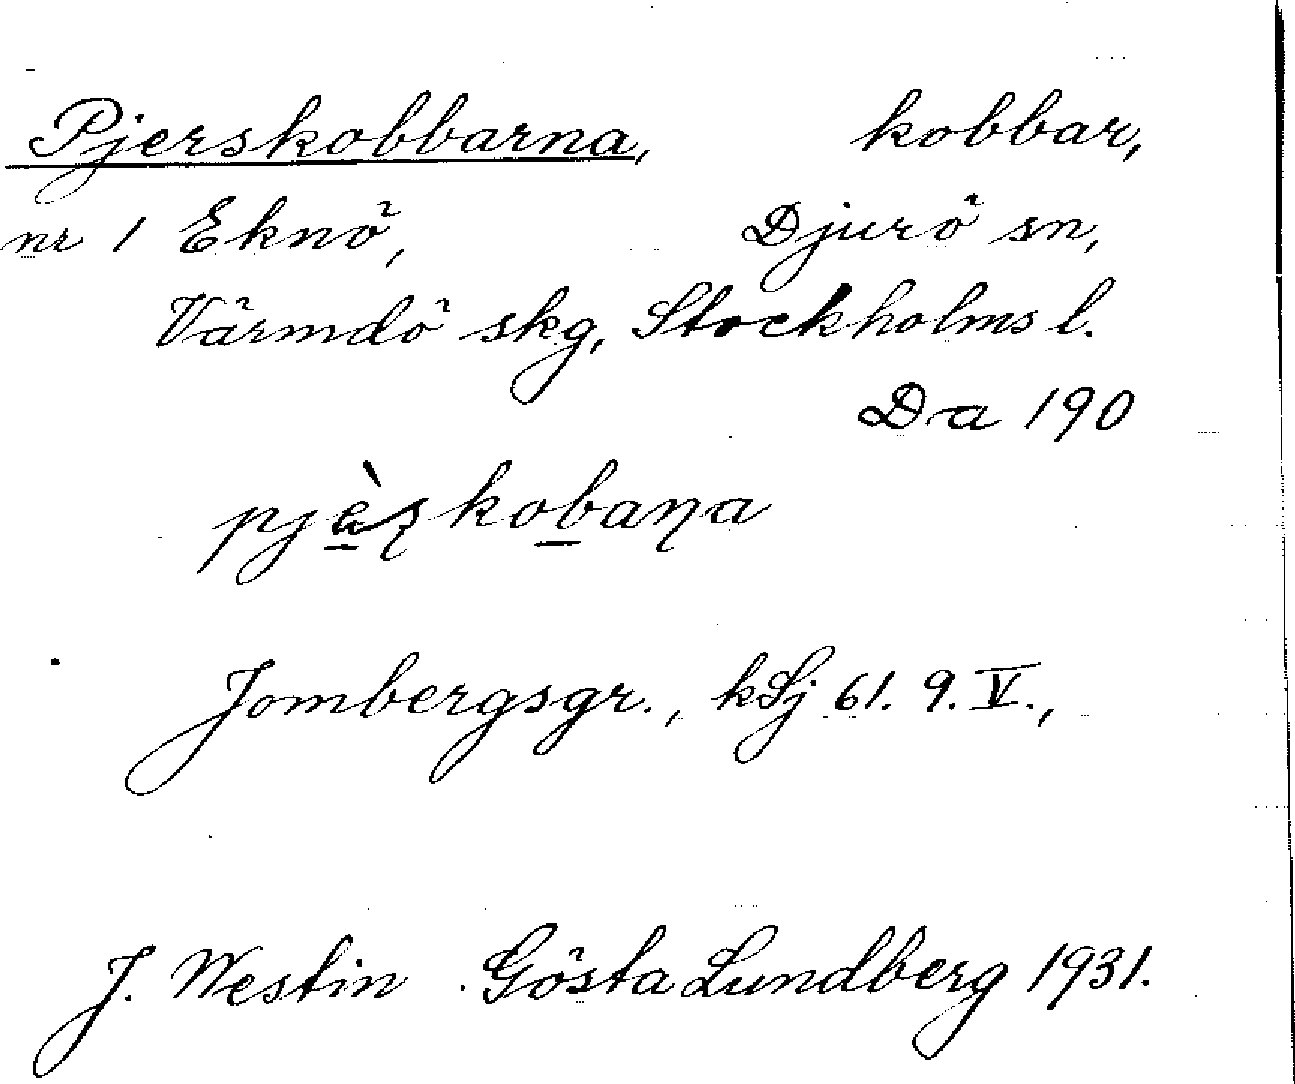 Pjerskobbarna, kobbar,
nr 1 Eknö, Djurö sn,
Värmdö skg, Stockholms l.
Da 190
pjæ̀ʂkobaɳa
Jombergsgr., kSj 61. 9. V.,
J. Westin Gösta Lundberg 1931.